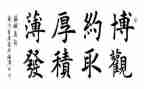 博觀約取
厚積薄發